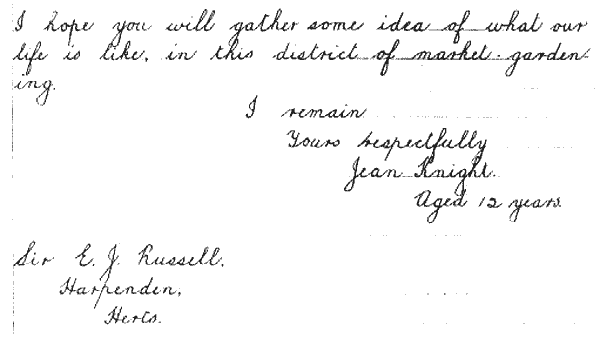 I hope you will gather some idea of what our
life is like, in this district of market-garden-
ing.
I remain
Yours respectfully
Jean Knight.
Aged 12 years.
Sir E. J. Russell,
Harpenden,
Herts.